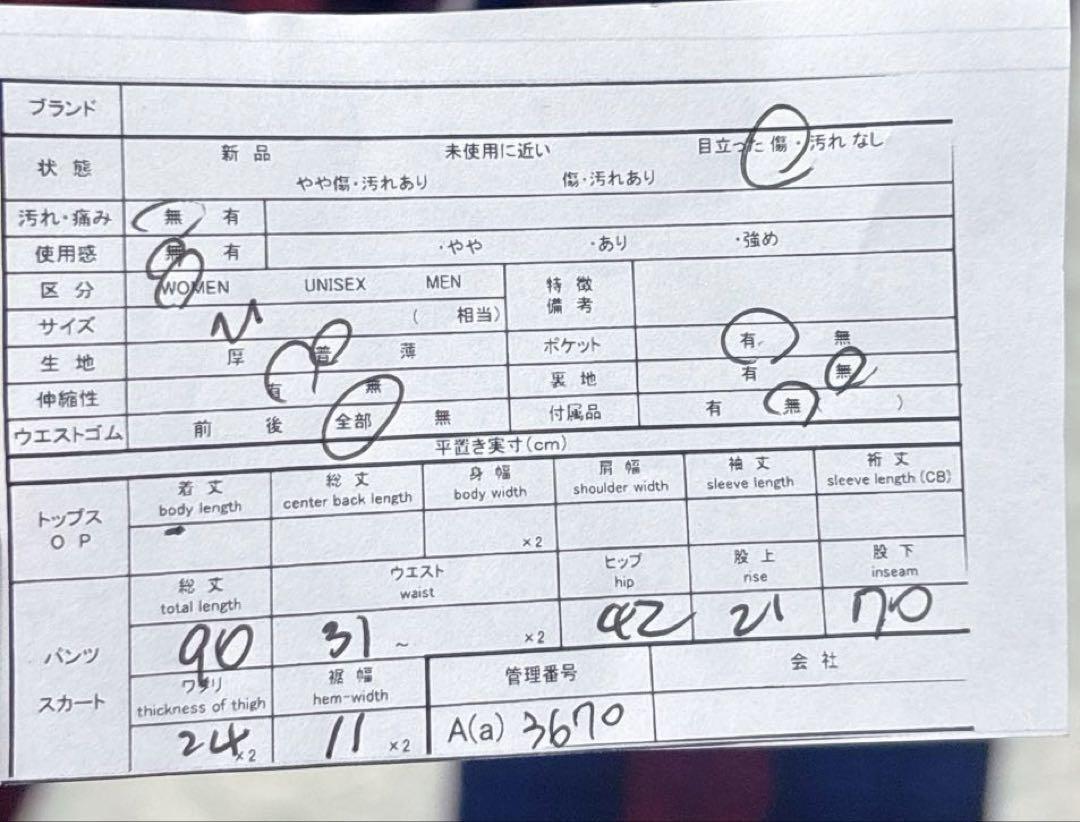 ブランド
状態 新品 未使用に近い 目立った傷・汚れなし
やや傷・汚れあり 傷・汚れあり
汚れ・痛み 無 有
使用感 無 有 ・やや ・あり ・強め
区分 WOMEN UNISEX MEN 特徴
備考
サイズ M ( 相当)
生地 厚 普 薄 ポケット 有 無
伸縮性 有 無 裏地 有 無
ウエストゴム 前 後 全部 無 付属品 有 無 )
平置き実寸(cm)
着丈 総丈 身幅 肩幅 袖丈 裄丈
body length center back length body width shoulder width sleeve length sleeve length (CB)
トップス
OP ×2
総丈 ウエスト ヒップ 股上 股下
total length waist hip rise inseam
パンツ 90 31 ~ ×2 92 21 70
スカート ワタリ 裾幅 管理番号 会社
thickness of thigh hem-width
24 ×2 11 ×2 A(a) 3670